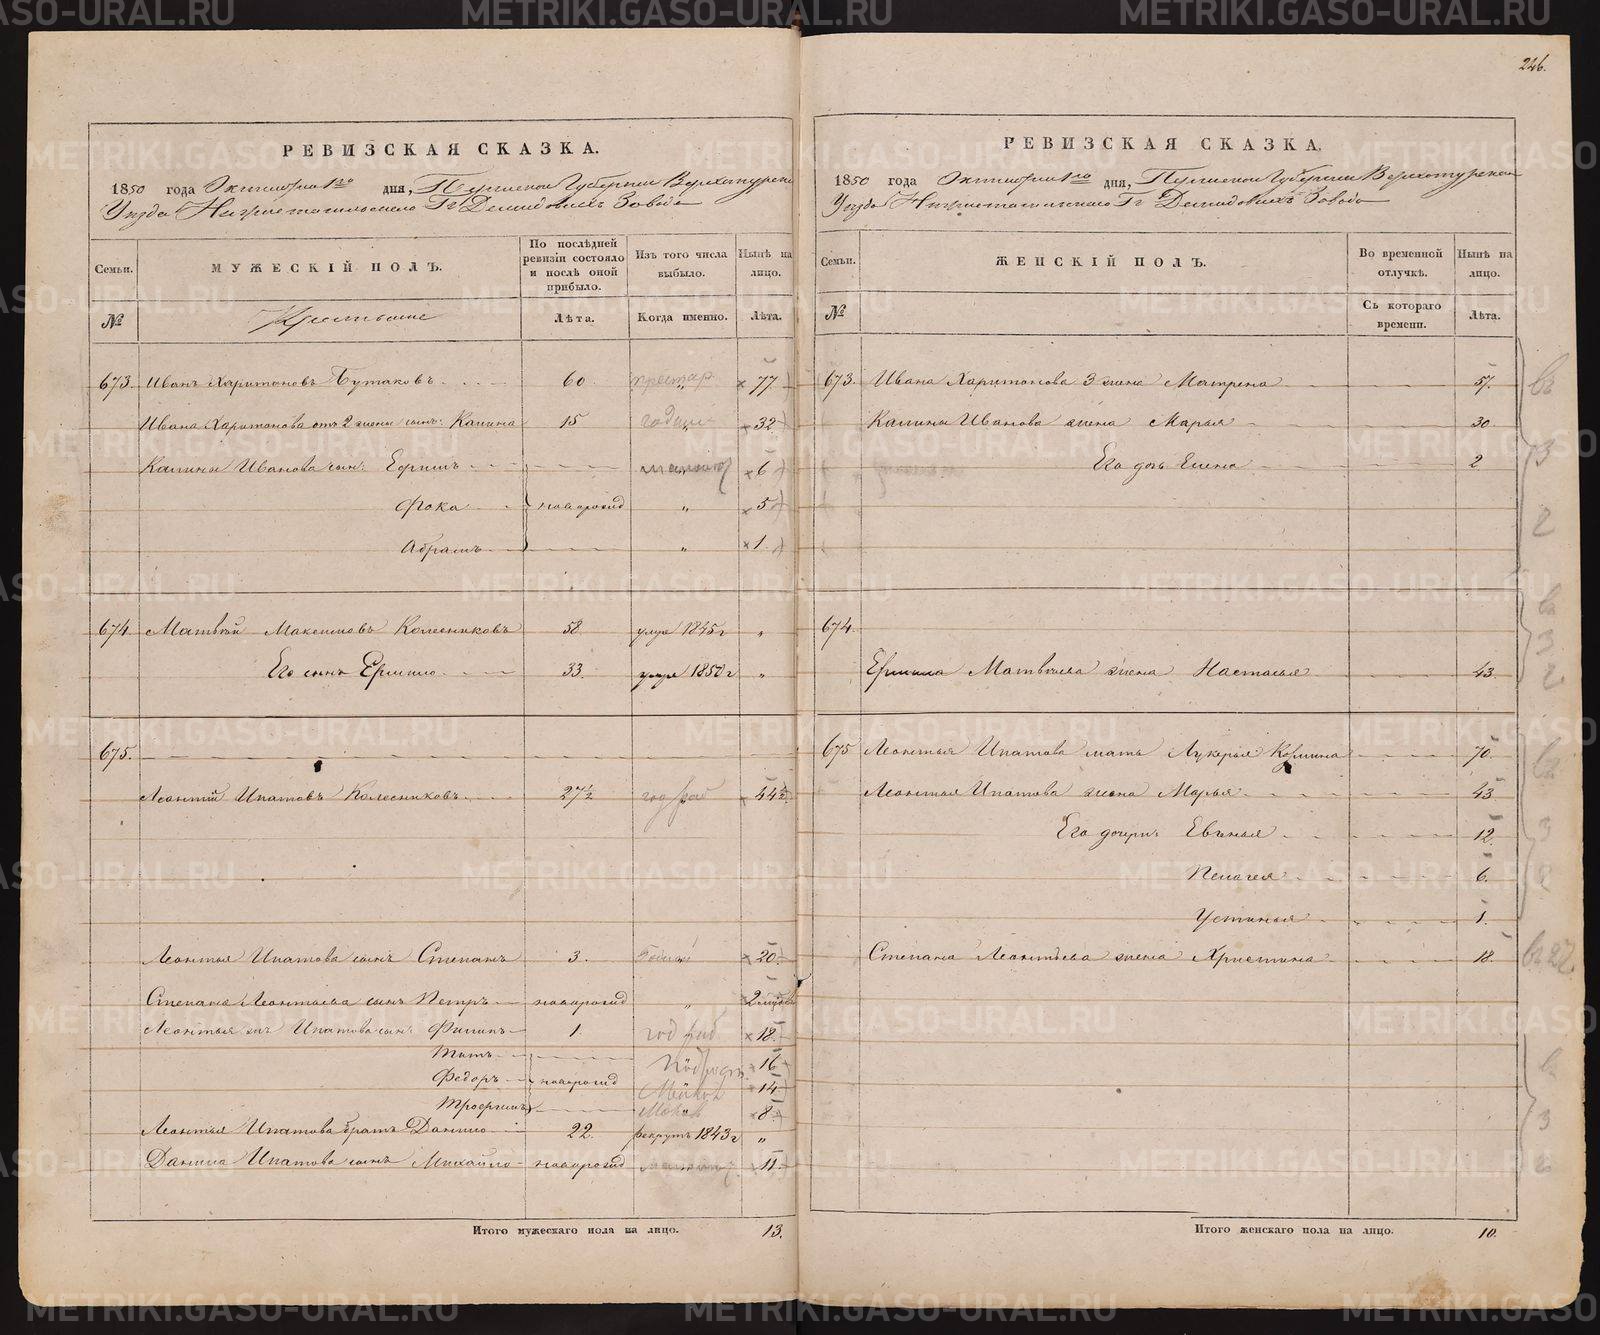 246.
РЕВИЗСКАЯ СКАЗКА.
1850 года Октября 1го дня, Пермской Губернии Верхотурскаго
Уезда Нижнетагильскаго Гг Демидовыхъ Завода
Семьи. МУЖЕСКІЙ ПОЛЪ. По послѣдней ревизіи состояло и послѣ оной прибыло. Изъ того числа выбыло. Нынѣ на лицо.
№ Крестьяне Лѣта. Когда именно. Лѣта.
673. Иванъ Харитоновъ Бутаковъ 60. престар. 77
Ивана Харитонова отъ 2 жены сынъ: Калина 15 32
Калины Иванова сын: Ефимъ 6
Фока новорожд " 5
Абрамъ " 1.
674. Матвѣй Максимовъ Колесниковъ 58 умре 1845г "
Его сынъ Ермило 33. умре 1850г "
675.
Леонтій Ипатовъ Колесниковъ 27½ 44½
Леонтья Ипатова сынъ Степанъ 3. Годный 20
Степана Леонтьева сынъ Петръ новорожд "
Леонтья Ипатова сын: Филипъ 1. 18
Титъ 16
Федоръ новорожд 14
Трофимъ 8
Леонтья Ипатова братъ Данило 22. рекрутъ 1843г "
Данила Ипатова сынъ Михайло новорожд 11
Итого мужескаго пола на лицо. 13.
РЕВИЗСКАЯ СКАЗКА.
1850 года Октября 1го дня, Пермской Губернии Верхотурскаго
Уезда Нижнетагильскаго Гг Демидовыхъ Завода
Семьи. ЖЕНСКІЙ ПОЛЪ. Во временной отлучкѣ. Нынѣ на лицо.
№ Съ котораго времени. Лѣта.
673. Ивана Харитонова 3 жена Матрена 57.
Калины Иванова жена Марья 30
Его дочь Елена 2
674.
Ермила Матвѣева жена Настасья 43.
675 Леонтья Ипатова мать Лукерья Козмина 70.
Леонтья Ипатова жена Марья 43
Его дочери: Евгенья 12.
Пелагея 6.
Устинья 1.
Степана Леонтьева жена Христина 18.
Итого женскаго пола на лицо. 10.
METRIKI.GASO-URAL.RU